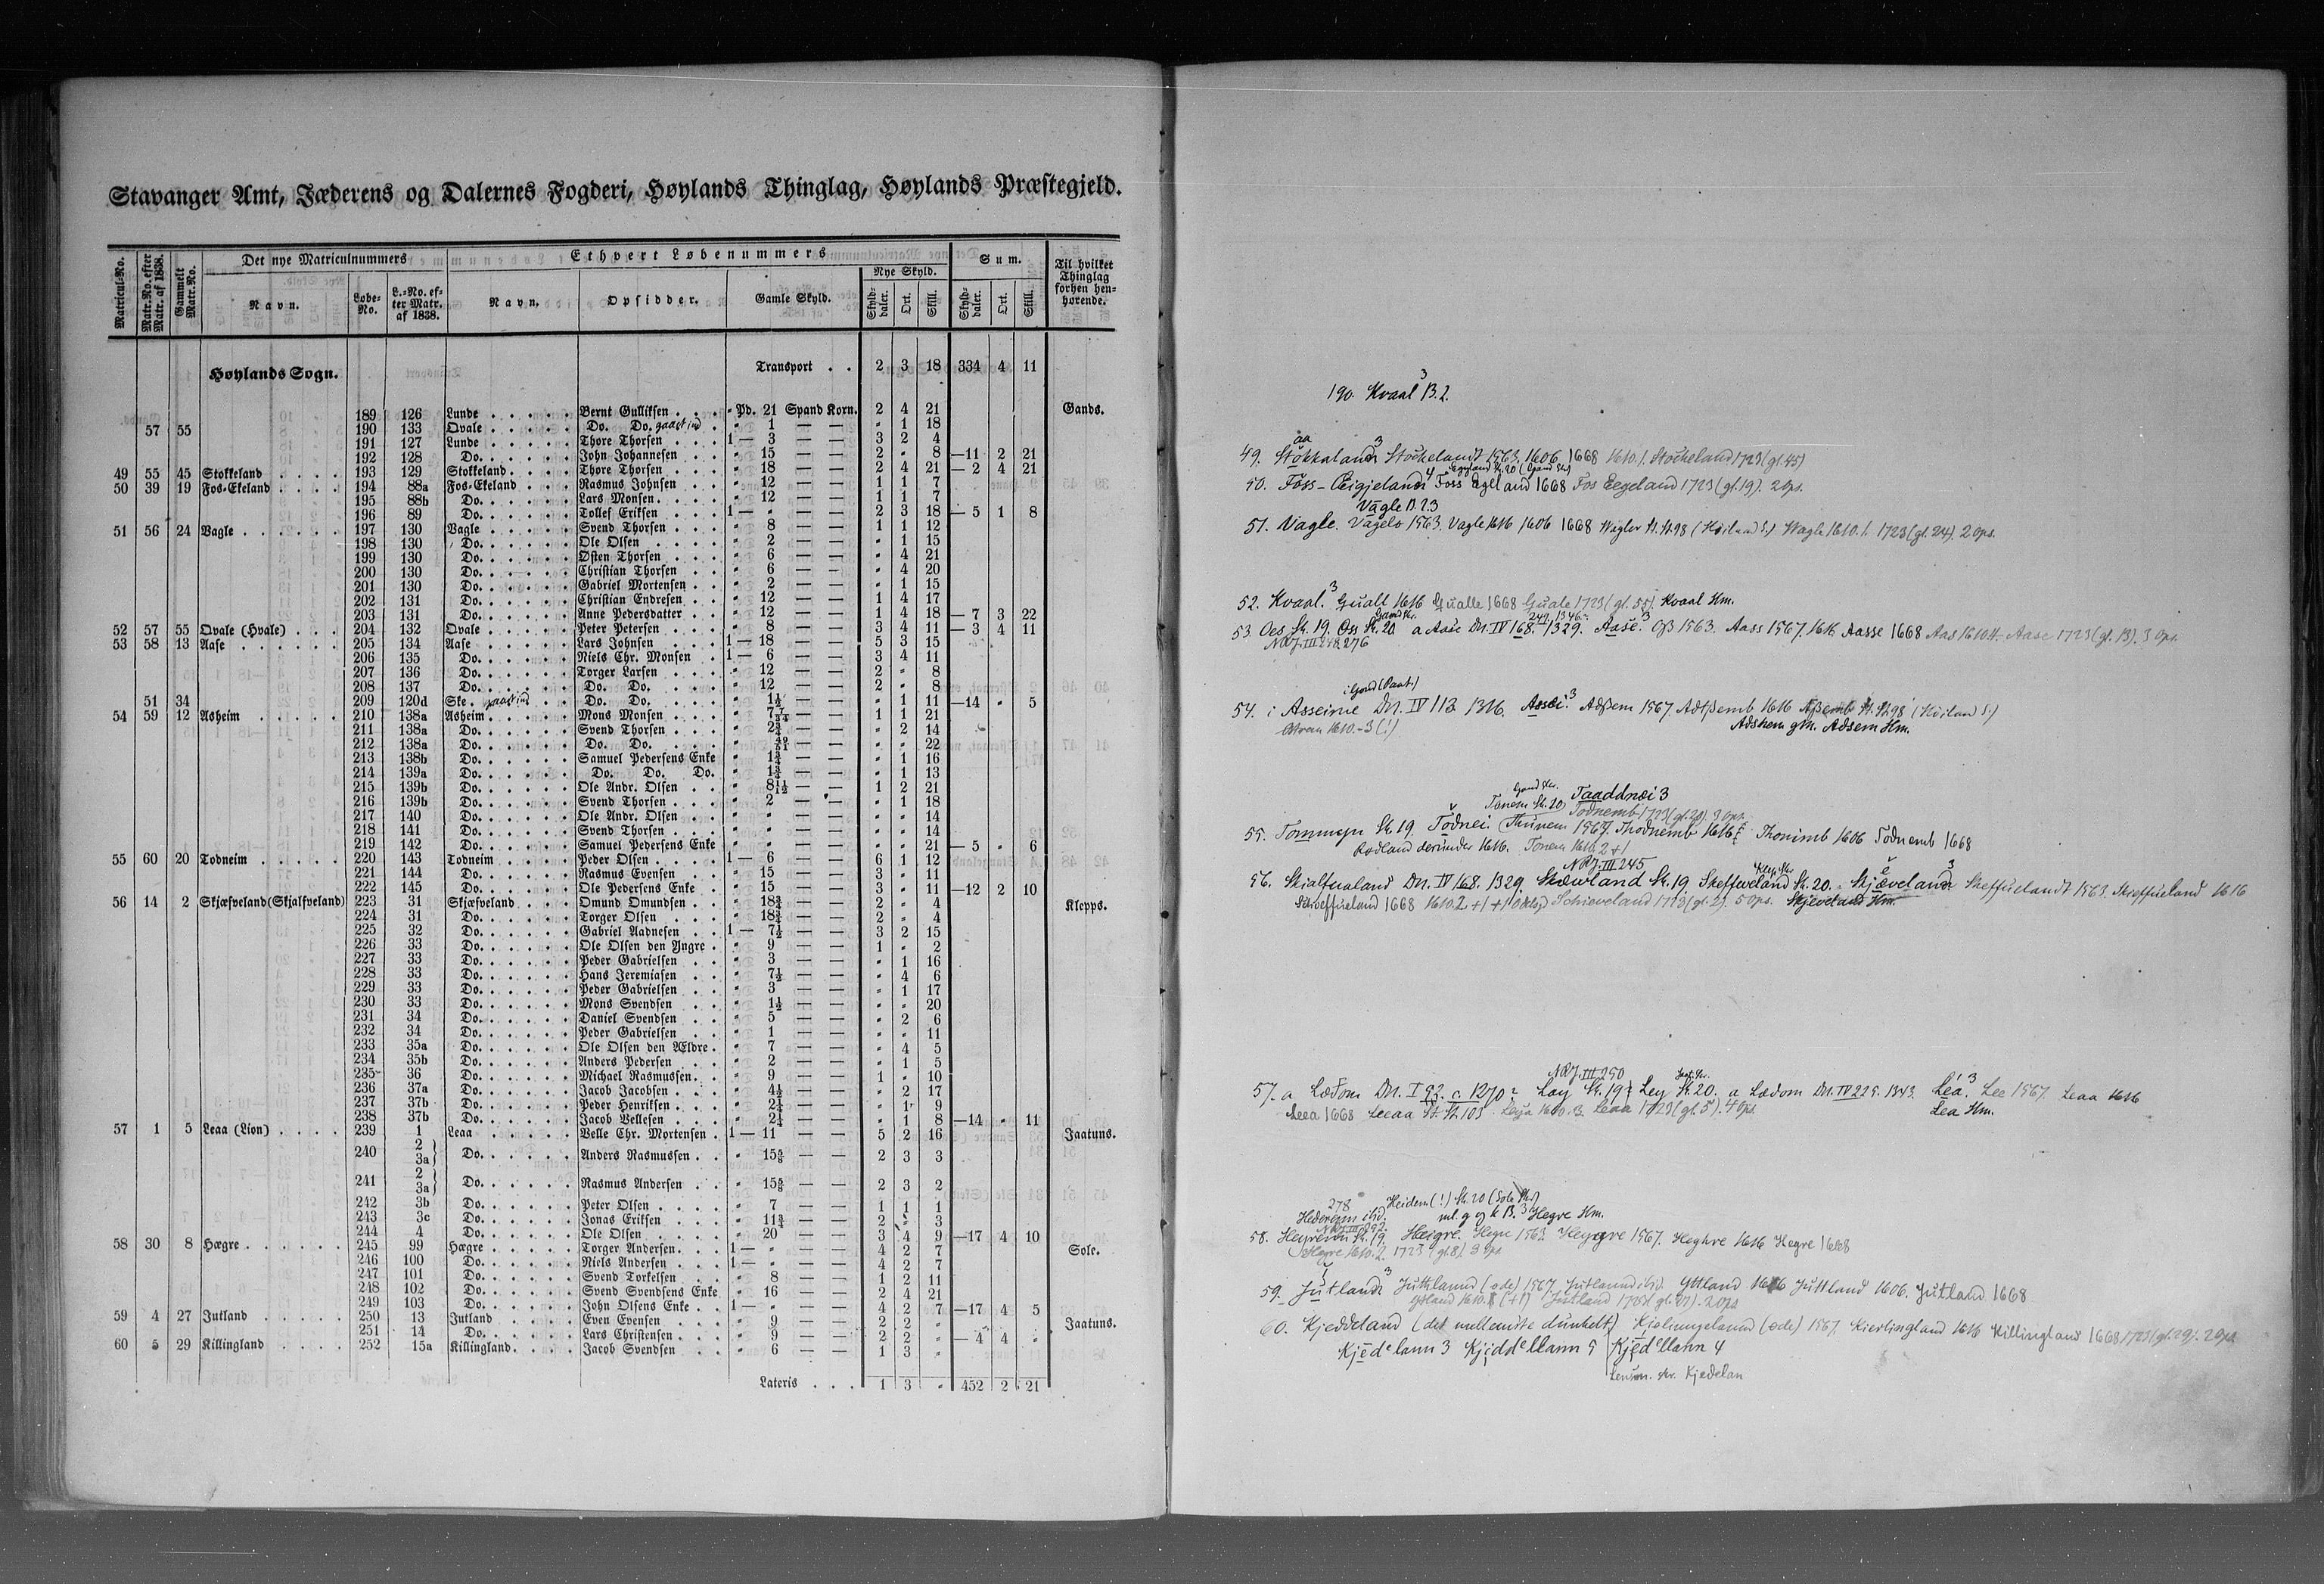 Stavanger Amt, Jæderens og Dalernes Fogderi, Høylands Thinglag, Høylands Præstegjeld.
Matricul-No. Matr.No. efter Matr. af 1838. Gammelt Matr.No. Det nye Matriculnummers Ethvert Løbenummers Sum. Til hvilket Thinglag forhen henhørende.
Navn. Løbe-No. L.-No. efter Matr. af 1838. Navn. Opsidder. Gamle Skyld. Nye Skyld. Skylddaler. Ort. Skill. Skylddaler. Ort. Skill.
Høylands Sogn. Transport . . 2 3 18 334 4 11
189 126 Lunde . . . . . Bernt Gulliksen . . . " Pd. 21 Spand Korn. 2 4 21 Gands.
57 55 190 133 Qvale . . . . . Do. Do. gaaet ind . " 1 — — " 1 18
191 127 Lunde . . . . . Thore Thorsen . . . 1 — 3 — — 3 2 4
192 128 Do. . . . . . John Johannesen . . " 15 — — 2 " 8 —11 2 21
49 55 45 Stokkeland . . . . 193 129 Stokkeland . . . . Thore Thorsen . . . " 18 — — 2 4 21 — 2 4 21
50 39 19 Fos-Ekeland . . . . 194 88a Fos-Ekeland . . . Rasmus Johnsen . . " 12 — — 1 1 7
195 88b Do. . . . . . Lars Monsen . . . . " 12 — — 1 1 7
196 89 Do. . . . . . Tollef Eriksen . . . 1 — " — — 2 3 18 — 5 1 8
51 56 24 Vagle . . . . . . 197 130 Vagle . . . . . Svend Thorsen . . . " 8 — — 1 1 12
198 130 Do. . . . . . Ole Olsen . . . . " 2 — — " 1 15
199 130 Do. . . . . . Østen Thorsen . . . " 6 — — " 4 21
200 130 Do. . . . . . Christian Thorsen . . " 6 — — " 4 20
201 130 Do. . . . . . Gabriel Mortensen . . " 2 — — " 1 15
202 131 Do. . . . . . Christian Endresen . . " 12 — — 1 4 17
203 131 Do. . . . . . Anne Pedersdatter . . " 12 — — 1 4 18 — 7 3 22
52 57 55 Qvale (Hvale) . . . 204 132 Qvale . . . . . Peter Petersen . . . " 8 — — 3 4 11 — 3 4 11
53 58 13 Aase . . . . . . 205 134 Aase . . . . . Lars Johnsen . . . 1 — 18 — — 5 3 15
206 135 Do. . . . . . Niels Chr. Monsen . . 1 — 6 — — 3 4 11
207 136 Do. . . . . . Torger Larsen . . . " 12 — — 2 " 8
208 137 Do. . . . . . Do. Do. . . . " 12 — — 2 " 8
51 34 209 120d Ske . . . . . . Do. Do. . . . " 1½ — — " 1 11 —14 " 5
54 59 12 Asheim . . . . . 210 138a Asheim . . . . . Mons Monsen . . . " — — 1 1 21
211 138a Do. . . . . . Svend Thorsen . . . " — — " 2 14
212 138a Do. . . . . . Do. Do. . . . " — — " " 22
213 138b Do. . . . . . Samuel Pedersens Enke " — — " 1 16
214 139a Do. . . . . . Do. Do. Do. " — — " 1 13
215 139b Do. . . . . . Ole Andr. Olsen . . " 8 11/12 — — 1 2 21
216 139b Do. . . . . . Svend Thorsen . . . " 2 — — " 1 18
217 140 Do. . . . . . Ole Andr. Olsen . . " " — — " " 14
218 141 Do. . . . . . Svend Thorsen . . . " " — — " " 14
219 142 Do. . . . . . Samuel Pedersens Enke " " — — " " 21 — 5 " 6
55 60 20 Todneim . . . . . 220 143 Todneim . . . . Peder Olsen . . . . 1 — 6 — — 6 1 12
221 144 Do. . . . . . Rasmus Evensen . . " 15 — — 3 " 11
222 145 Do. . . . . . Ole Pedersens Enke . . " 15 — — 3 " 11 —12 2 10
56 14 2 Skjæfveland (Skjalfveland) 223 31 Skjæfveland . . . Omund Omundsen . . " 18¾ — — 2 " 4 Klepps.
224 31 Do. . . . . . Torger Olsen . . . " 18¾ — — 2 " 4
225 32 Do. . . . . . Gabriel Aadnesen . . 1 — 7½ — — 3 2 15
226 33 Do. . . . . . Ole Olsen den Yngre . " 9 — — 1 " 2
227 33 Do. . . . . . Peder Gabrielsen . . " 3 — — " 1 16
228 33 Do. . . . . . Hans Jeremiasen . . " 7½ — — " 4 6
229 33 Do. . . . . . Peder Gabrielsen . . " 3 — — " 1 17
230 33 Do. . . . . . Mons Svendsen . . " 1½ — — " " 20
231 34 Do. . . . . . Daniel Svendsen . . " 5 — — " 2 6
232 34 Do. . . . . . Peder Gabrielsen . . " 1 — — " " 11
233 35a Do. . . . . . Ole Olsen den Ældre . " 7 — — " 4 5
234 35b Do. . . . . . Anders Pedersen . . " 2 — — " 1 5
235 36 Do. . . . . . Michael Rasmussen . . " 9 — — 1 " 10
236 37a Do. . . . . . Jacob Jacobsen . . . " 4½ — — " 2 17
237 37b Do. . . . . . Peder Henriksen . . . " 2¼ — — " 1 9
238 37b Do. . . . . . Jacob Vellesen . . . " 2¼ — — " 1 8 —14 " 11
57 1 5 Leaa (Lion) . . . . 239 1 Leaa . . . . . Velle Chr. Mortensen . 1 — 11 — — 5 2 16 Jaatuns.
240 2 3a} Do. . . . . . Anders Rasmussen . . " 15⅝ — — 2 3 3
241 2 3a} Do. . . . . . Rasmus Andersen . . " 15⅝ — — 2 3 2
242 3b Do. . . . . . Peter Olsen . . . . " 7 — — 1 1 1
243 3c Do. . . . . . Jonas Eriksen . . . " 11¾ — — 2 " 3
244 4 Do. . . . . . Ole Olsen . . . . " 20 — — 3 4 9 —17 4 10
58 30 8 Hægre . . . . . . 245 99 Hægre . . . . . Torger Andersen . . . 1 — " — — 4 2 7 Sole.
246 100 Do. . . . . . Niels Andersen . . . 1 — " — — 4 2 7
247 101 Do. . . . . . Svend Torkelsen . . " 8 — — 1 2 11
248 102 Do. . . . . . Svend Svendsens Enke " 16 — — 2 4 21
249 103 Do. . . . . . John Olsens Enke . . 1 — " — — 4 2 7 —17 4 5
59 4 27 Jutland . . . . . 250 13 Jutland . . . . Even Evensen . . . " 9 — — 2 2 " Jaatuns.
251 14 Do. . . . . . Lars Christensen . . . " 9 — — 2 2 " — 4 4 "
60 5 29 Killingland . . . . 252 15a Killingland . . . . Jacob Svendsen . . . " 6 — — 1 3 "
Lateris . . . 1 3 " 452 2 21
190. Kvaal³ B. 2.
49. Stokkaland³ Stockelandt 1563. 1606 1668 1610.1. Stockeland 1723 (gl. 45)
Egeland St. 20 (Gand Skr)
50. Foss-Œigjeland⁴ Foss Egeland 1668 Fos Eegeland 1723 (gl. 19). 2 Ops.
Vagle B. 2.3
51. Vagle. Vagelo 1563. Vagle 1616 1606 1668 Wagler St. St. 98 (Höiland S.) Wagle 1610.1. 1723 (gl. 24). 2 Ops.
52. Kvaal.³ Gualt 1616 Gualle 1668 Guale 1723 (gl. 55). Kvaal Hm.
53. Oes St. 19. Oss St. 20 a Aase Dn. IV 168. 1329. Aase.³ Oß 1563. Aass 1567. 1616 Aasse 1668 Aas 1610.4. Aase 1723 (gl. 13). 3 Ops.
54. i Asseime Dn. IV 113 1316. Assei.³ Adßem 1567. Adtßemb 1616 Aßemb St. St. 98 (Höiland S.)
1610.-3 (!) Adshem gM. Adsem Hm.
Taaddnæi 3
Tonem St. 20) Todnemb 1723 (gl. 20) 3 Ops.
55. St. 19. Todnei. Thunem 1567. Thodnemb 1616 Thonimb 1606 Todnemb 1668
Rodland derunder 1616. Tonem 1610. 2+1
NRJ. III 245
56. Skialfualand Dn. IV 168. 1329. Skewland St. 19. Skeffweland St. 20. Skjæveland³ Skeffuelandt 1563. Skieffueland 1616
1668 1610. 2+1+1 Schioveland 1723 (gl. 2). 5 Ops. Skjeveland Hm.
NRJ. III 250
57. a Ledom Dn. I 92. c. 1270? Lay St. 19. Ley St. 20. a Lædom Dn. IV 225. 1343. Léa.³ Lee 1567. Leaa 1616
Leea 1668 Leeaa St. St. 105 1610.3. Leaa 1723 (gl. 5). 4 Ops. Lea Hm.
278 Heidem (!) St. 20 (Sole Skr)
ml. g og k B. 3 Hegre Hm.
58. St. 19. Heigre. 1563 1567. Heghre 1616 Hegre 1668
Hegre 1610.2. 1723 (gl. 8). 3 Ops
59. Jutland³ (øde) 1567. Jutlannd ibid. Yttland 1616 Juttland 1606. Jutland 1668
Jutland 1723 (gl. 27). 2 Ops
60. Kjeddeland (det mellemste dunkelt) (øde) 1567. Kierlingland 1616 Killingland 1668 1723 (gl. 29). 2 Ops.
Kjedᵉlann 3 Kjeddᵉllann 5 Kjedᵉllann 4
skr. Kjedelan